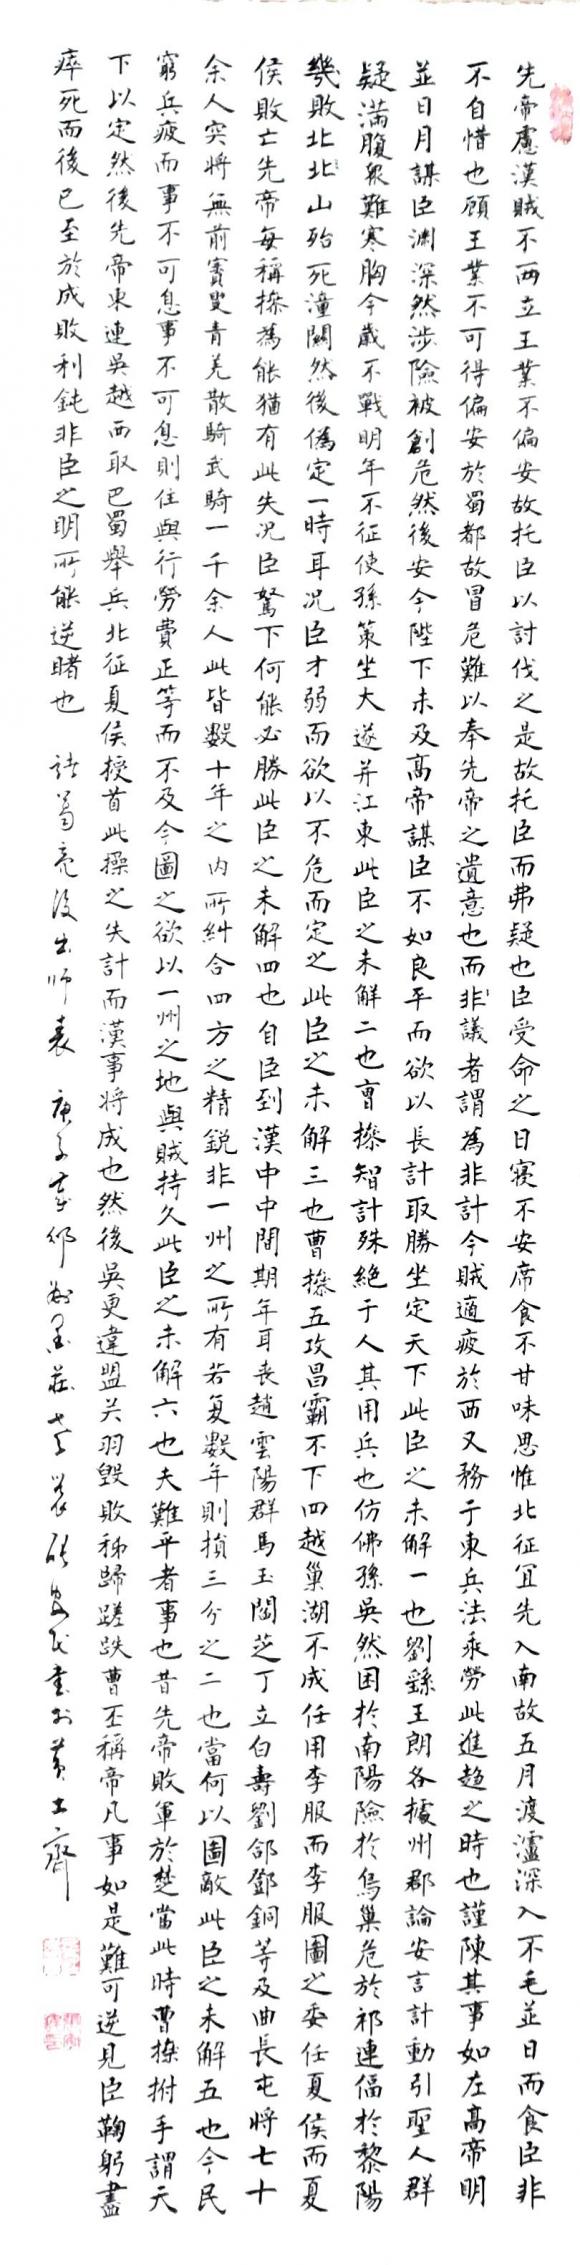 先帝慮漢賊不兩立王業不偏安故托臣以討伐之是故托臣而弗疑也臣受命之日寢不安席食不甘味思惟北征冝先入南故五月渡瀘深入不毛並日而食臣非
不自惜也顧王業不可得偏安於蜀都故冒危難以奉先帝之遺意也而非議者謂為非計今賊適疲於西又務于東兵法乘勞此進趋之時也謹陳其事如左高帝明
並日月謀臣渊深然涉險被創危然後安今陛下未及高帝謀臣不如良平而欲以長計取勝坐定天下此臣之未解一也劉繇王朗各據州郡論安言計動引聖人群
疑滿腹衆難寒胸今歲不戰明年不征使孫策坐大遂并江東此臣之未解二也曹操智計殊絕于人其用兵也仿佛孫吳然困於南陽險於烏巢危於祁連偪於黎陽
幾敗北北山殆死潼關然後偽定一時耳况臣才弱而欲以不危而定之此臣之未解三也曹操五攻昌霸不下四越巢湖不成任用李服而李服圖之委任夏侯而夏
侯敗亡先帝每稱操為能猶有此失况臣駑下何能必勝此臣之未解四也自臣到漢中中間期年耳丧趙雲陽群馬玉閻芝丁立白壽劉郃鄧銅等及曲長屯將七十
余人突將無前賨叟青羌散騎武騎一千余人此皆數十年之内所糾合四方之精銳非一州之所有若复數年則損三分之二也當何以圖敵此臣之未解五也今民
窮兵疲而事不可息事不可息則住與行勞費正等而不及今圖之欲以一州之地與賊持久此臣之未解六也夫難平者事也昔先帝敗軍於楚當此時曹操拊手謂天
下以定然後先帝東連吳越西取巴蜀舉兵北征夏侯授首此操之失計而漢事將成也然後吳更違盟关羽毁敗秭歸蹉跌曹丕稱帝凡事如是難可逆見臣鞠躬盡
瘁死而後已至於成敗利鈍非臣之明所能逆睹也　諸葛亮後出師表　庚子